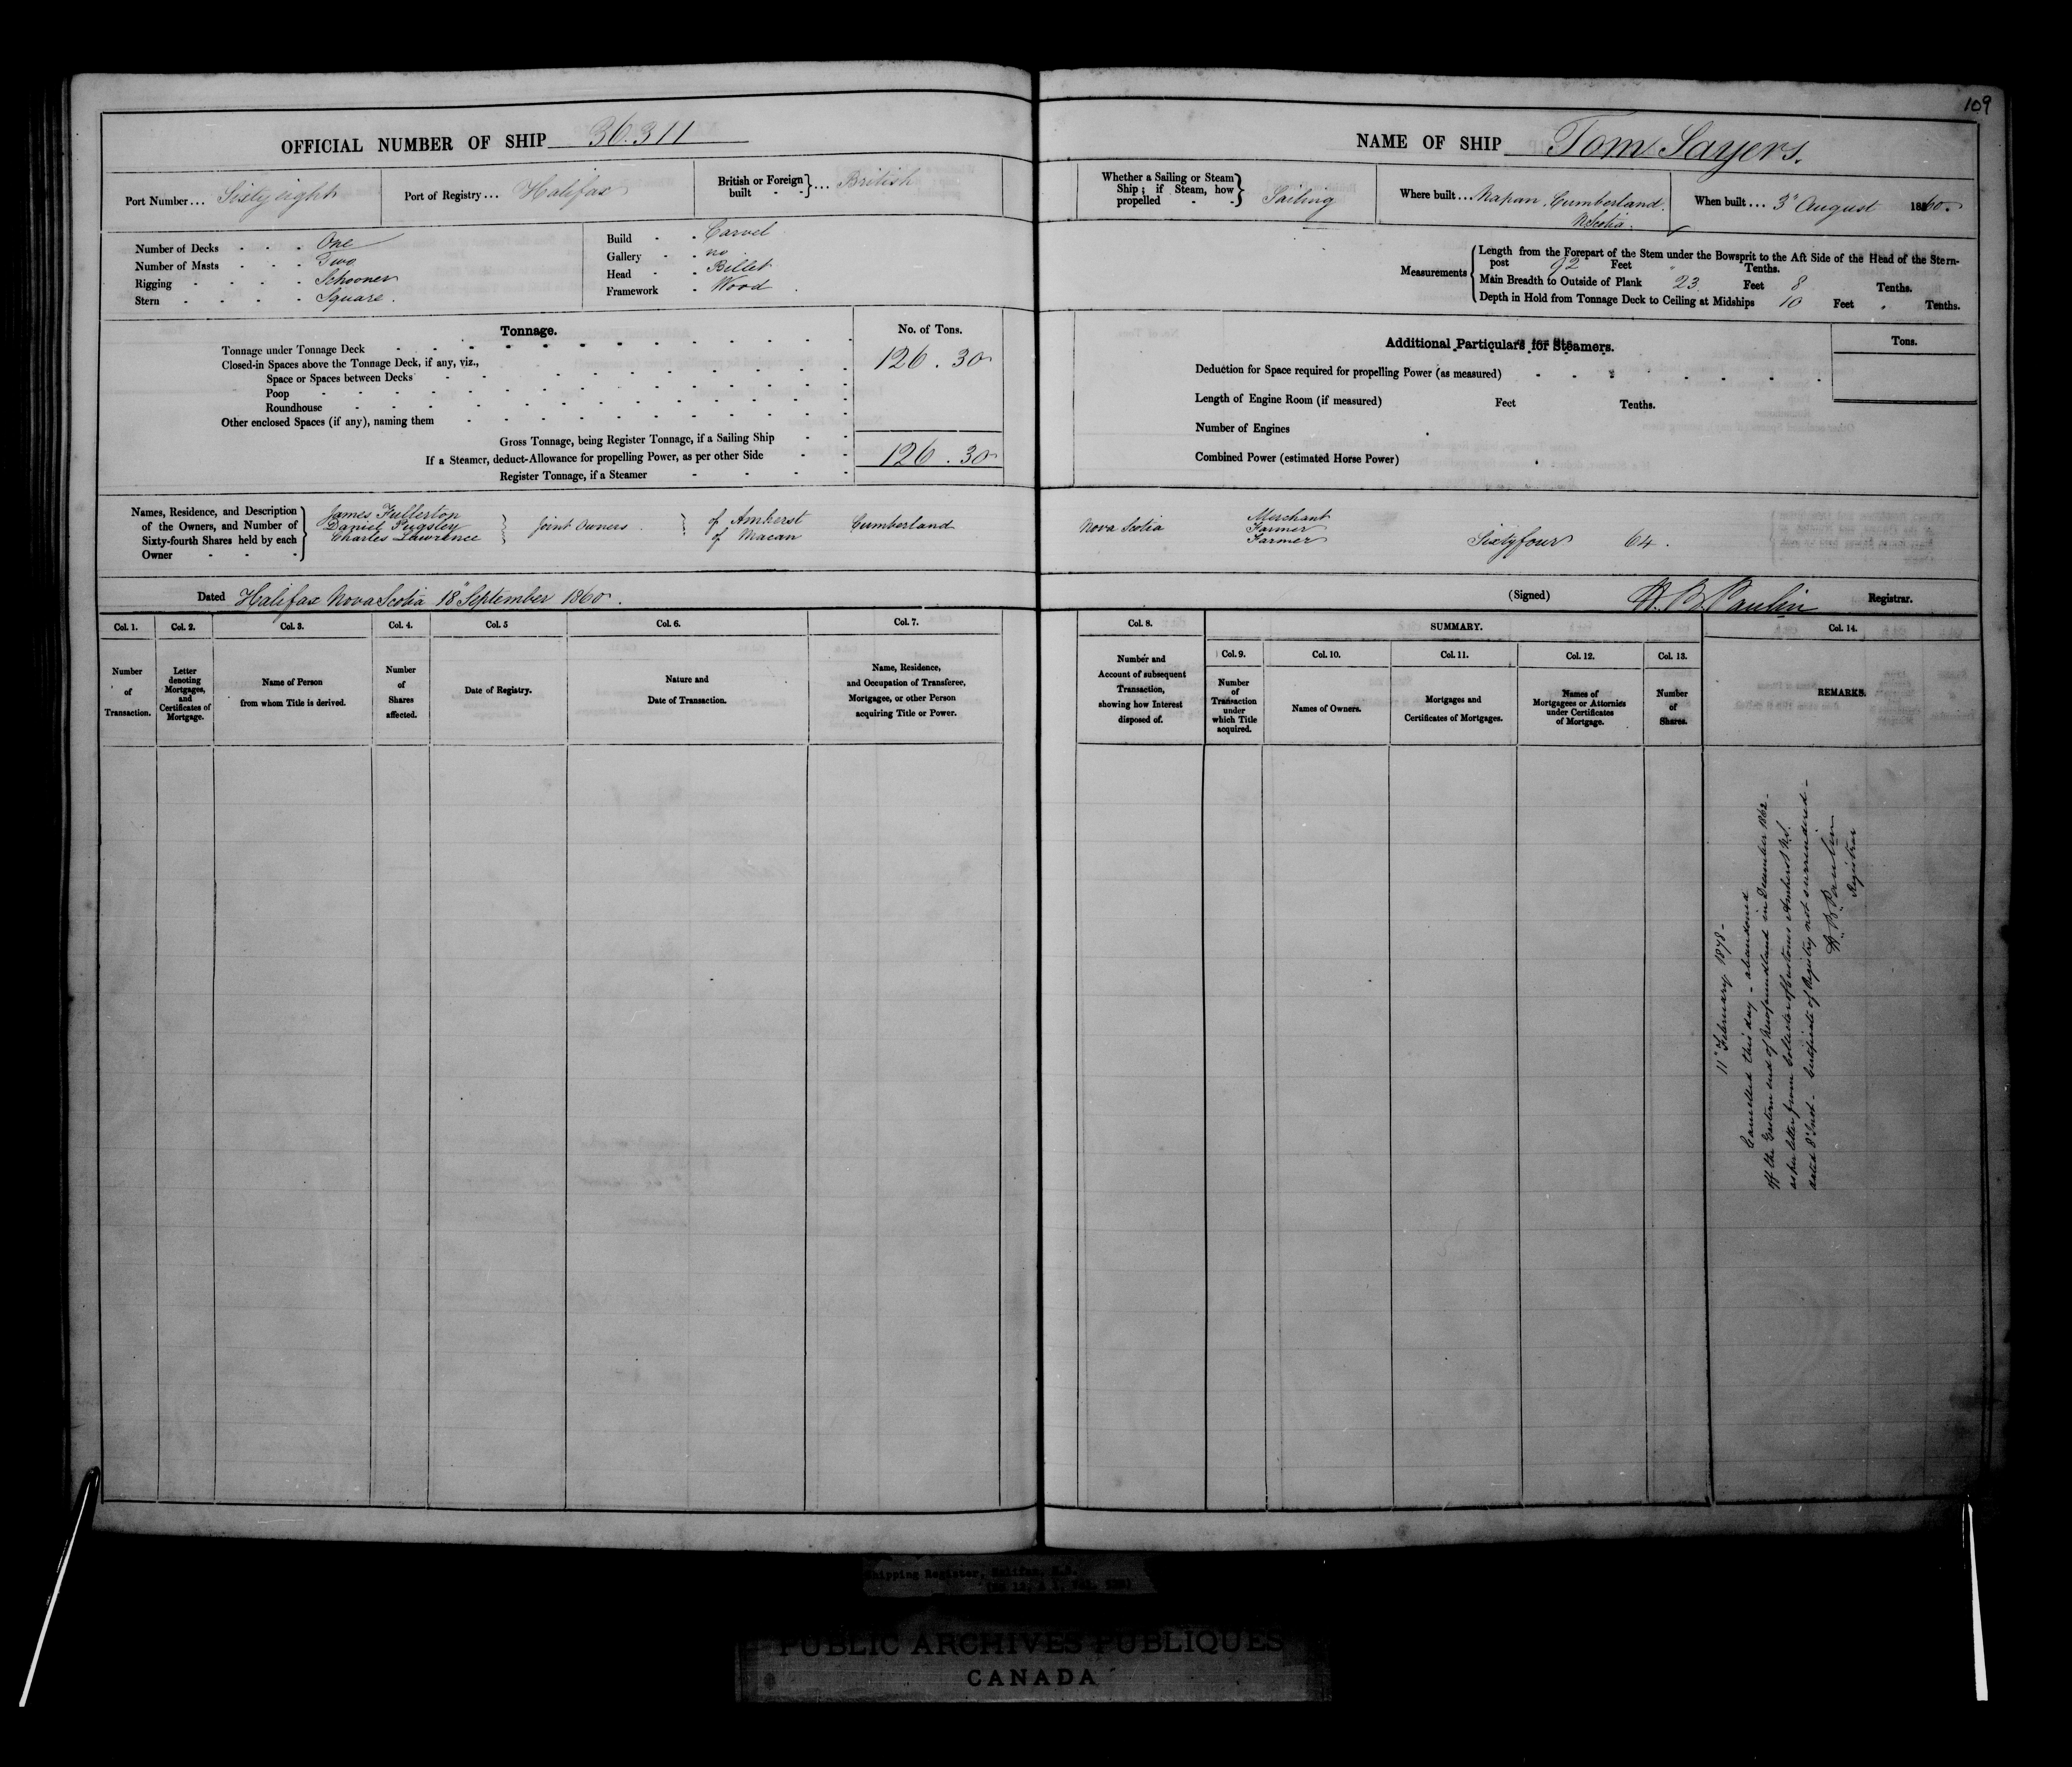 109
OFFICIAL NUMBER OF SHIP 36.311
NAME OF SHIP Tom Sayers.
Port Number... Sixty eight
Port of Registry... Halifax
British or Foreign built } ... British
Whether a Sailing or Steam Ship; if Steam, how propelled } Sailing
Where built... Napan, Cumberland. N Scotia.
When built... 3" August 1860.
Number of Decks - - - One
Number of Masts - - - Two
Rigging - - - - Schooner
Stern - - - - Square.
Build - - Carvel
Gallery - - no
Head - - Billet
Framework - Wood
Measurements { Length from the Forepart of the Stem under the Bowsprit to the Aft Side of the Head of the Stern-
post 92 Feet " Tenths.
Main Breadth to Outside of Plank 23 Feet 8 Tenths.
Depth in Hold from Tonnage Deck to Ceiling at Midships 10 Feet " Tenths.
Tonnage.
No. of Tons.
Tonnage under Tonnage Deck 126.30
Closed-in Spaces above the Tonnage Deck, if any, viz.,
Space or Spaces between Decks
Poop
Roundhouse
Other enclosed Spaces (if any), naming them
Gross Tonnage, being Register Tonnage, if a Sailing Ship
If a Steamer, deduct-Allowance for propelling Power, as per other Side 126.30
Register Tonnage, if a Steamer
Additional Particulars for Steamers.
Tons.
Deduction for Space required for propelling Power (as measured)
Length of Engine Room (if measured) Feet Tenths.
Number of Engines
Combined Power (estimated Horse Power)
Names, Residence, and Description
of the Owners, and Number of
Sixty-fourth Shares held by each
Owner
James Fullerton
Daniel Pugsley
Charles Lawrence
Joint Owners
of Amherst
of Macan
Cumberland
Nova Scotia
Merchant
Farmer
Farmer
Sixtyfour 64.
Dated Halifax Nova Scotia 18" September 1860.
(Signed) H. B. Paulin Registrar.
Col. 1.
Col. 2.
Col. 3.
Col. 4.
Col. 5
Col. 6.
Col. 7.
Col. 8.
SUMMARY.
Col. 9.
Col. 10.
Col. 11.
Col. 12.
Col. 13.
Col. 14.
Number of Transaction.
Letter denoting Mortgages, and Certificates of Mortgage.
Name of Person from whom Title is derived.
Number of Shares affected.
Date of Registry.
Nature and Date of Transaction.
Name, Residence, and Occupation of Transferee, Mortgagee, or other Person acquiring Title or Power.
Number and Account of subsequent Transaction, showing how Interest disposed of.
Number of Transaction under which Title acquired.
Names of Owners.
Mortgages and Certificates of Mortgages.
Names of Mortgagees or Attornies under Certificates of Mortgage.
Number of Shares.
REMARKS.
11" February 1878 -
Cancelled this day - abandoned
off the Eastern end of Newfoundland in December 1862 -
as per letter from Collector of Customs Amherst N.S.
dated 8" Inst - Certificate of Registry not surrendered -
H. B. Paulin
Registrar
Shipping Register, Halifax, N.S.
PUBLIC ARCHIVES PUBLIQUES
CANADA